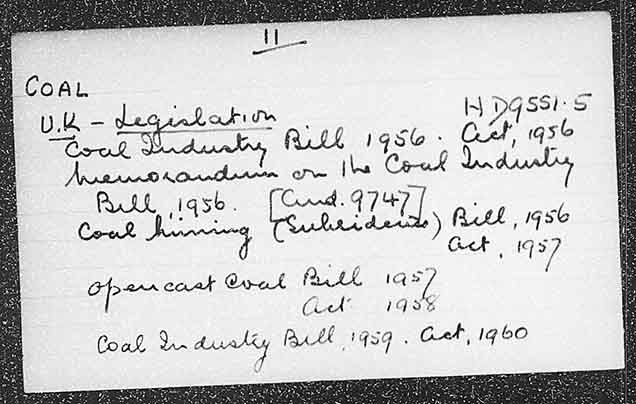 11
COAL
U.K - Legislation HD9551.5
Coal Industry Bill 1956. Act, 1956
Memorandum on the Coal Industry
Bill, 1956. [Cmd. 9747]
Coal Mining (Subsidence) Bill, 1956
Act, 1957
Opencast Coal Bill 1957
Act 1958
Coal Industry Bill, 1959. Act, 1960